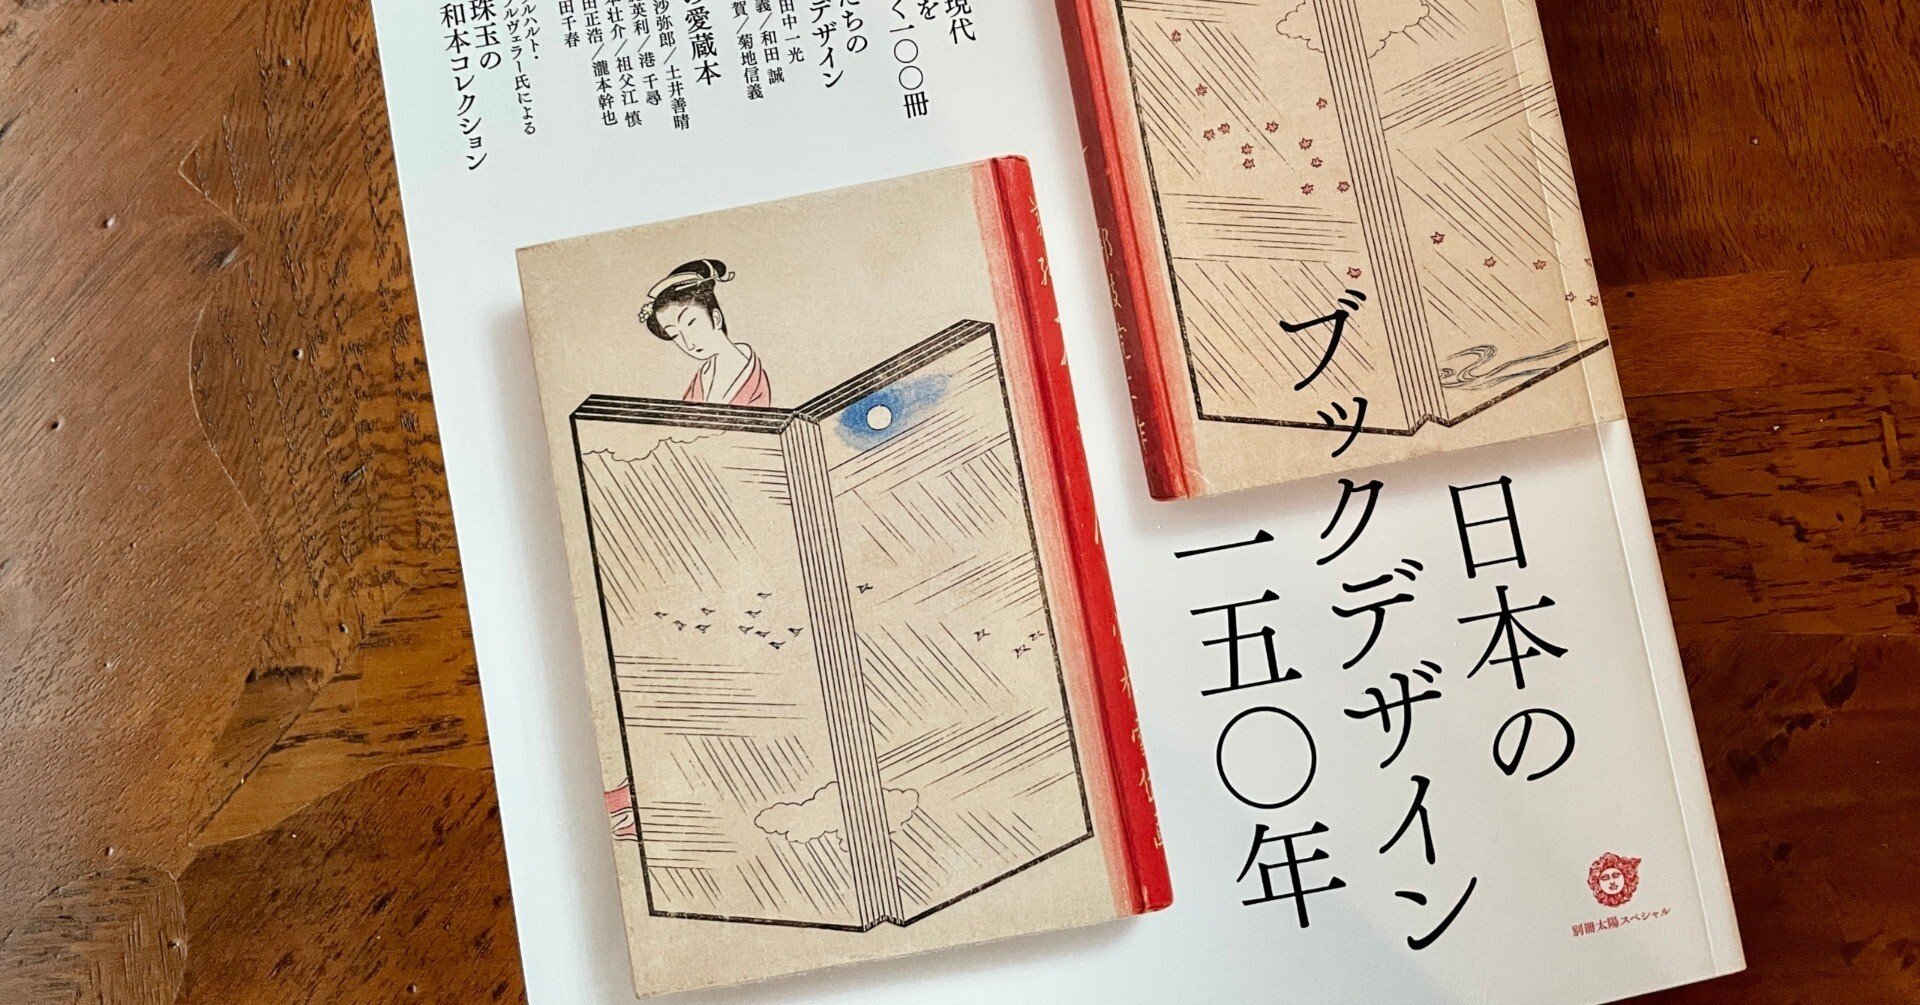 日本の
ブックデザイン
一五〇年
現代
を
く一〇〇冊
たちの
デザイン
田中一光
義／和田 誠
賀／菊地信義
愛蔵本
沙弥郎／土井善晴
英利／港 千尋
本壮介／祖父江 慎
田正浩／瀧本幹也
田千春
珠玉の
和本コレクション
ルハルト・
ルヴェラー氏による
別冊太陽スペシャル